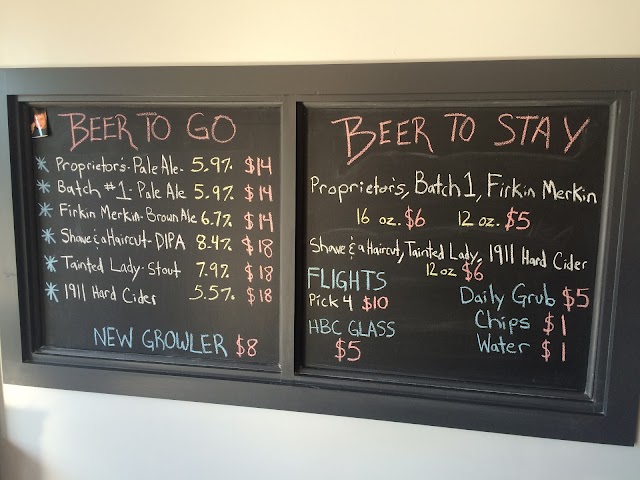 BEER TO GO
* Proprietor's-Pale Ale- 5.9% $14
* Batch #1-Pale Ale 5.9% $14
* Firkin Merkin-Brown Ale 6.7% $14
* Shave & a Haircut-DIPA 8.4% $18
* Tainted Lady-Stout 7.9% $18
* 1911 Hard Cider 5.5% $18
NEW GROWLER $8
BEER TO STAY
Proprietor's, Batch 1, Firkin Merkin
16 oz. $6 12 oz. $5
Shave & a Haircut, Tainted Lady, 1911 Hard Cider
12 oz $6
FLIGHTS
Pick 4 $10
HBC GLASS
$5
Daily Grub $5
Chips $1
Water $1